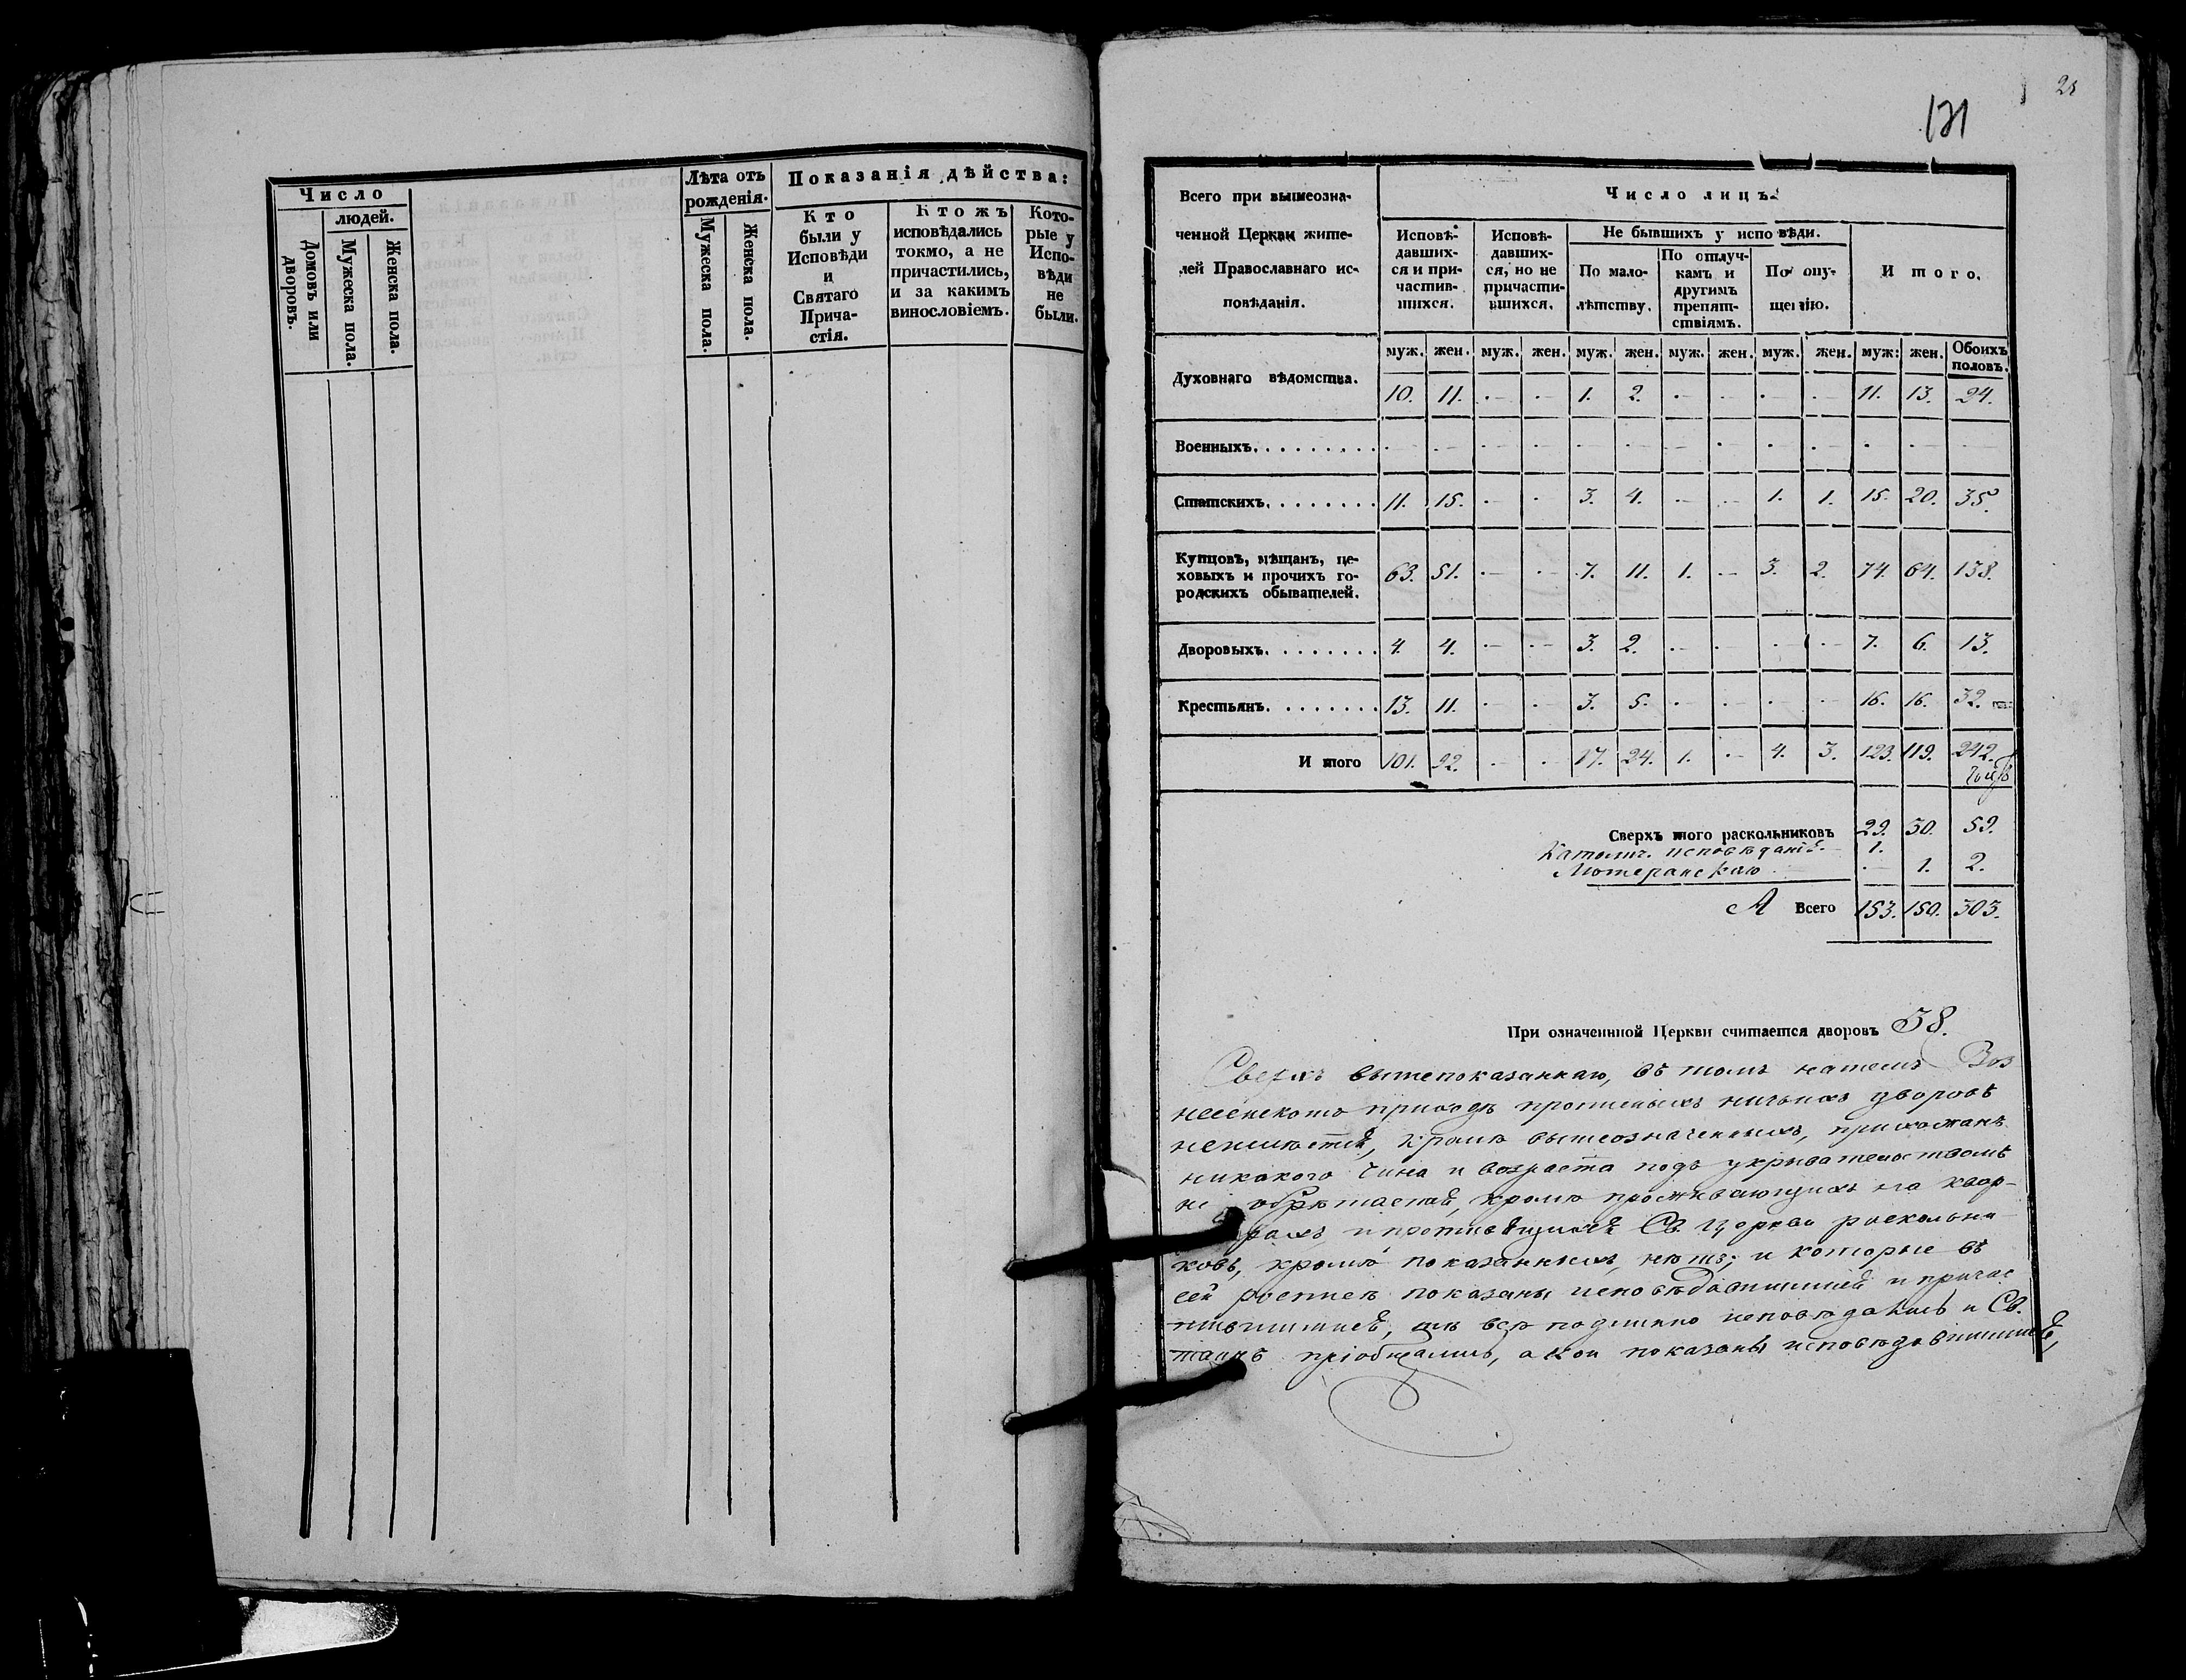 28
131
Число
людей.
Домовъ или дворовъ.
Мужеска пола.
Женска пола.
Лѣта отъ рожденія.
Мужеска пола.
Женска пола.
Показанія дѣйства:
Кто были у Исповѣди и Святаго Прича-стія.
Ктожъ исповѣдались токмо, а не причастились, и за какимъ винословіемъ.
Кото-рые у Испо-вѣди не были.
Всего при вышеозна-
ченной Церкви жите-
лей Православнаго ис-
повѣданія.
Число лицъ.
Исповѣ-давших-ся и при-частив-шихся.
Исповѣ-давших-ся, но не причасти-вшихся.
Не бывшихъ у исповѣди.
По мало-лѣтству.
По отлуч-камъ и другимъ препят-ствіямъ.
По опу-щенію.
И того.
муж. жен. муж. жен. муж. жен. муж. жен. муж. жен. муж: жен. Обоихъ половъ.
Духовнаго вѣдомства. 10. 11. ·— ·— 1. 2. ·— ·— ·— · 11. 13. 24.
Военныхъ.........
Статскихъ........ 11. 15. ·— · 3. 4. ·— ·— 1. 1. 15. 20. 35.
Купцовъ, мѣщанъ, це-
ховыхъ и прочихъ го-
родскихъ обывателей. 63. 51. ·— ·— 7. 11. 1. ·— 3. 2. 74. 64. 138.
Дворовыхъ........ 4. 4. ·— ·— 3. 2. ·— ·— · ·— 7. 6. 13.
Крестьянъ........ 13. 11. ·— ·— 3. 5. · ·— · ·— 16. 16. 32.
И того 101. 92. · · 17. 24. 1. ·— 4. 3. 123. 119. 242.
Сверхъ того раскольниковъ 29. 30. 59.
Католич. исповѣданія 1.
Лютеранскаго 1. 2.
Всего 153. 150. 303.
При означеннной Церкви считается дворовъ 38.
Сверхъ вышепоказаннаго, въ томъ нашемъ Воз
несенскомъ приходѣ ничьихъ дворовъ
неимѣется, кромѣ вышеозначенныхъ, прихожанъ
никакого чина и возраста подъ укрывательствомъ
не обрѣтается, кромѣ проживающихъ на квар-
Св. Церкви раскольни
ковъ, кромѣ показанныхъ, нѣтъ; и которые въ
сей росписи показаны исповѣдавшимися и причас
тившимися, тѣ всѣ подлинно исповѣдались и Св.
таинъ пріобщались, а кои показаны исповѣдавшимися,